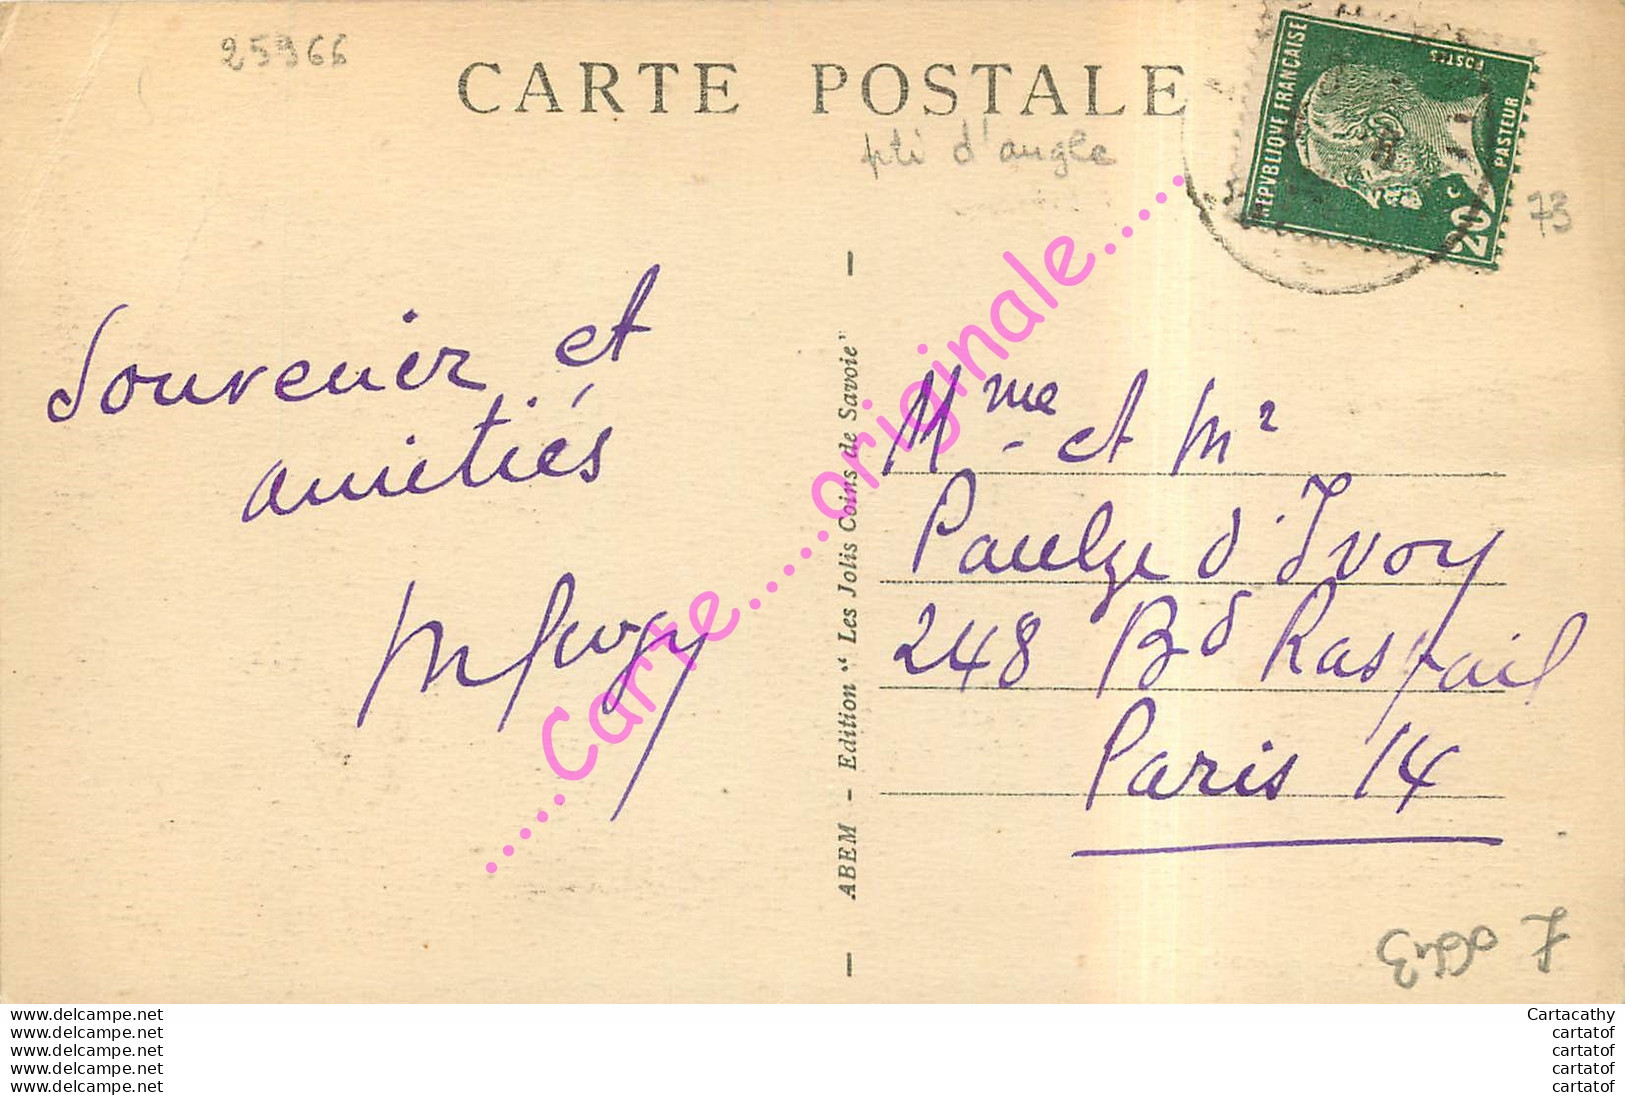 25966
CARTE POSTALE
pli d'angle
REPVBLIQUE FRANCAISE
POSTES
PASTEUR
20c
73
Souvenir et
amitiés
ABEM - Edition " Les Jolis Coins de Savoie"
.....Carte.....originale.....
Mme et Mr
Paulze d'Ivoy
248 Bd Raspail
Paris 14
www.delcampe.net
www.delcampe.net
www.delcampe.net
www.delcampe.net
www.delcampe.net
Cartacathy
cartatof
cartatof
cartatof
cartatof